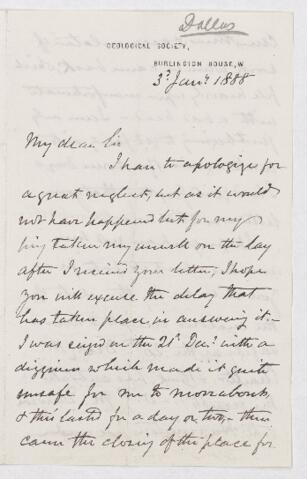 Dallas
GEOLOGICAL SOCIETY,
BURLINGTON HOUSE, W
3d Jany 1888
My dear Sir
I have to apologize for
a great neglect, but as it would
not have happened but for my
being taken unwell on the day
after I received your letter, I hope
you will excuse the delay that
has taken place in answering it –
I was seized on the 21st Decr with a
dizziness which made it quite
unsafe for me to move about,
& this lasted for a day or two – then
came the closing of the place for